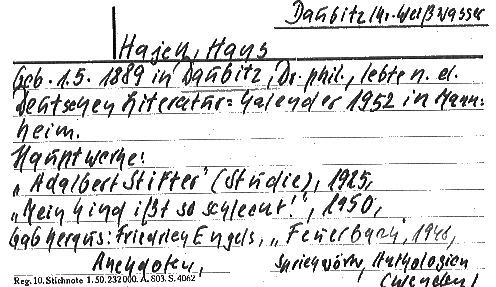 Daubitz/Kr. Weißwasser
Hajen, Hans
Geb. 1.5. 1889 in Daubitz, Dr. phil., lebte n. d.
Deutschen Literatur=Kalender 1952 in Mann-
heim.
Hauptwerke:
„Adalbert Stifter" (Studie), 1925,
„Mein Kind ißt so schlecht!", 1950,
Gab heraus: Friedrich Engels, „Feuerbach", 1946,
Anekdoten, Sprichwörter, Anthologien
Reg. 10. Stichnote 1. 50. 232000. A. 803. S. 4062